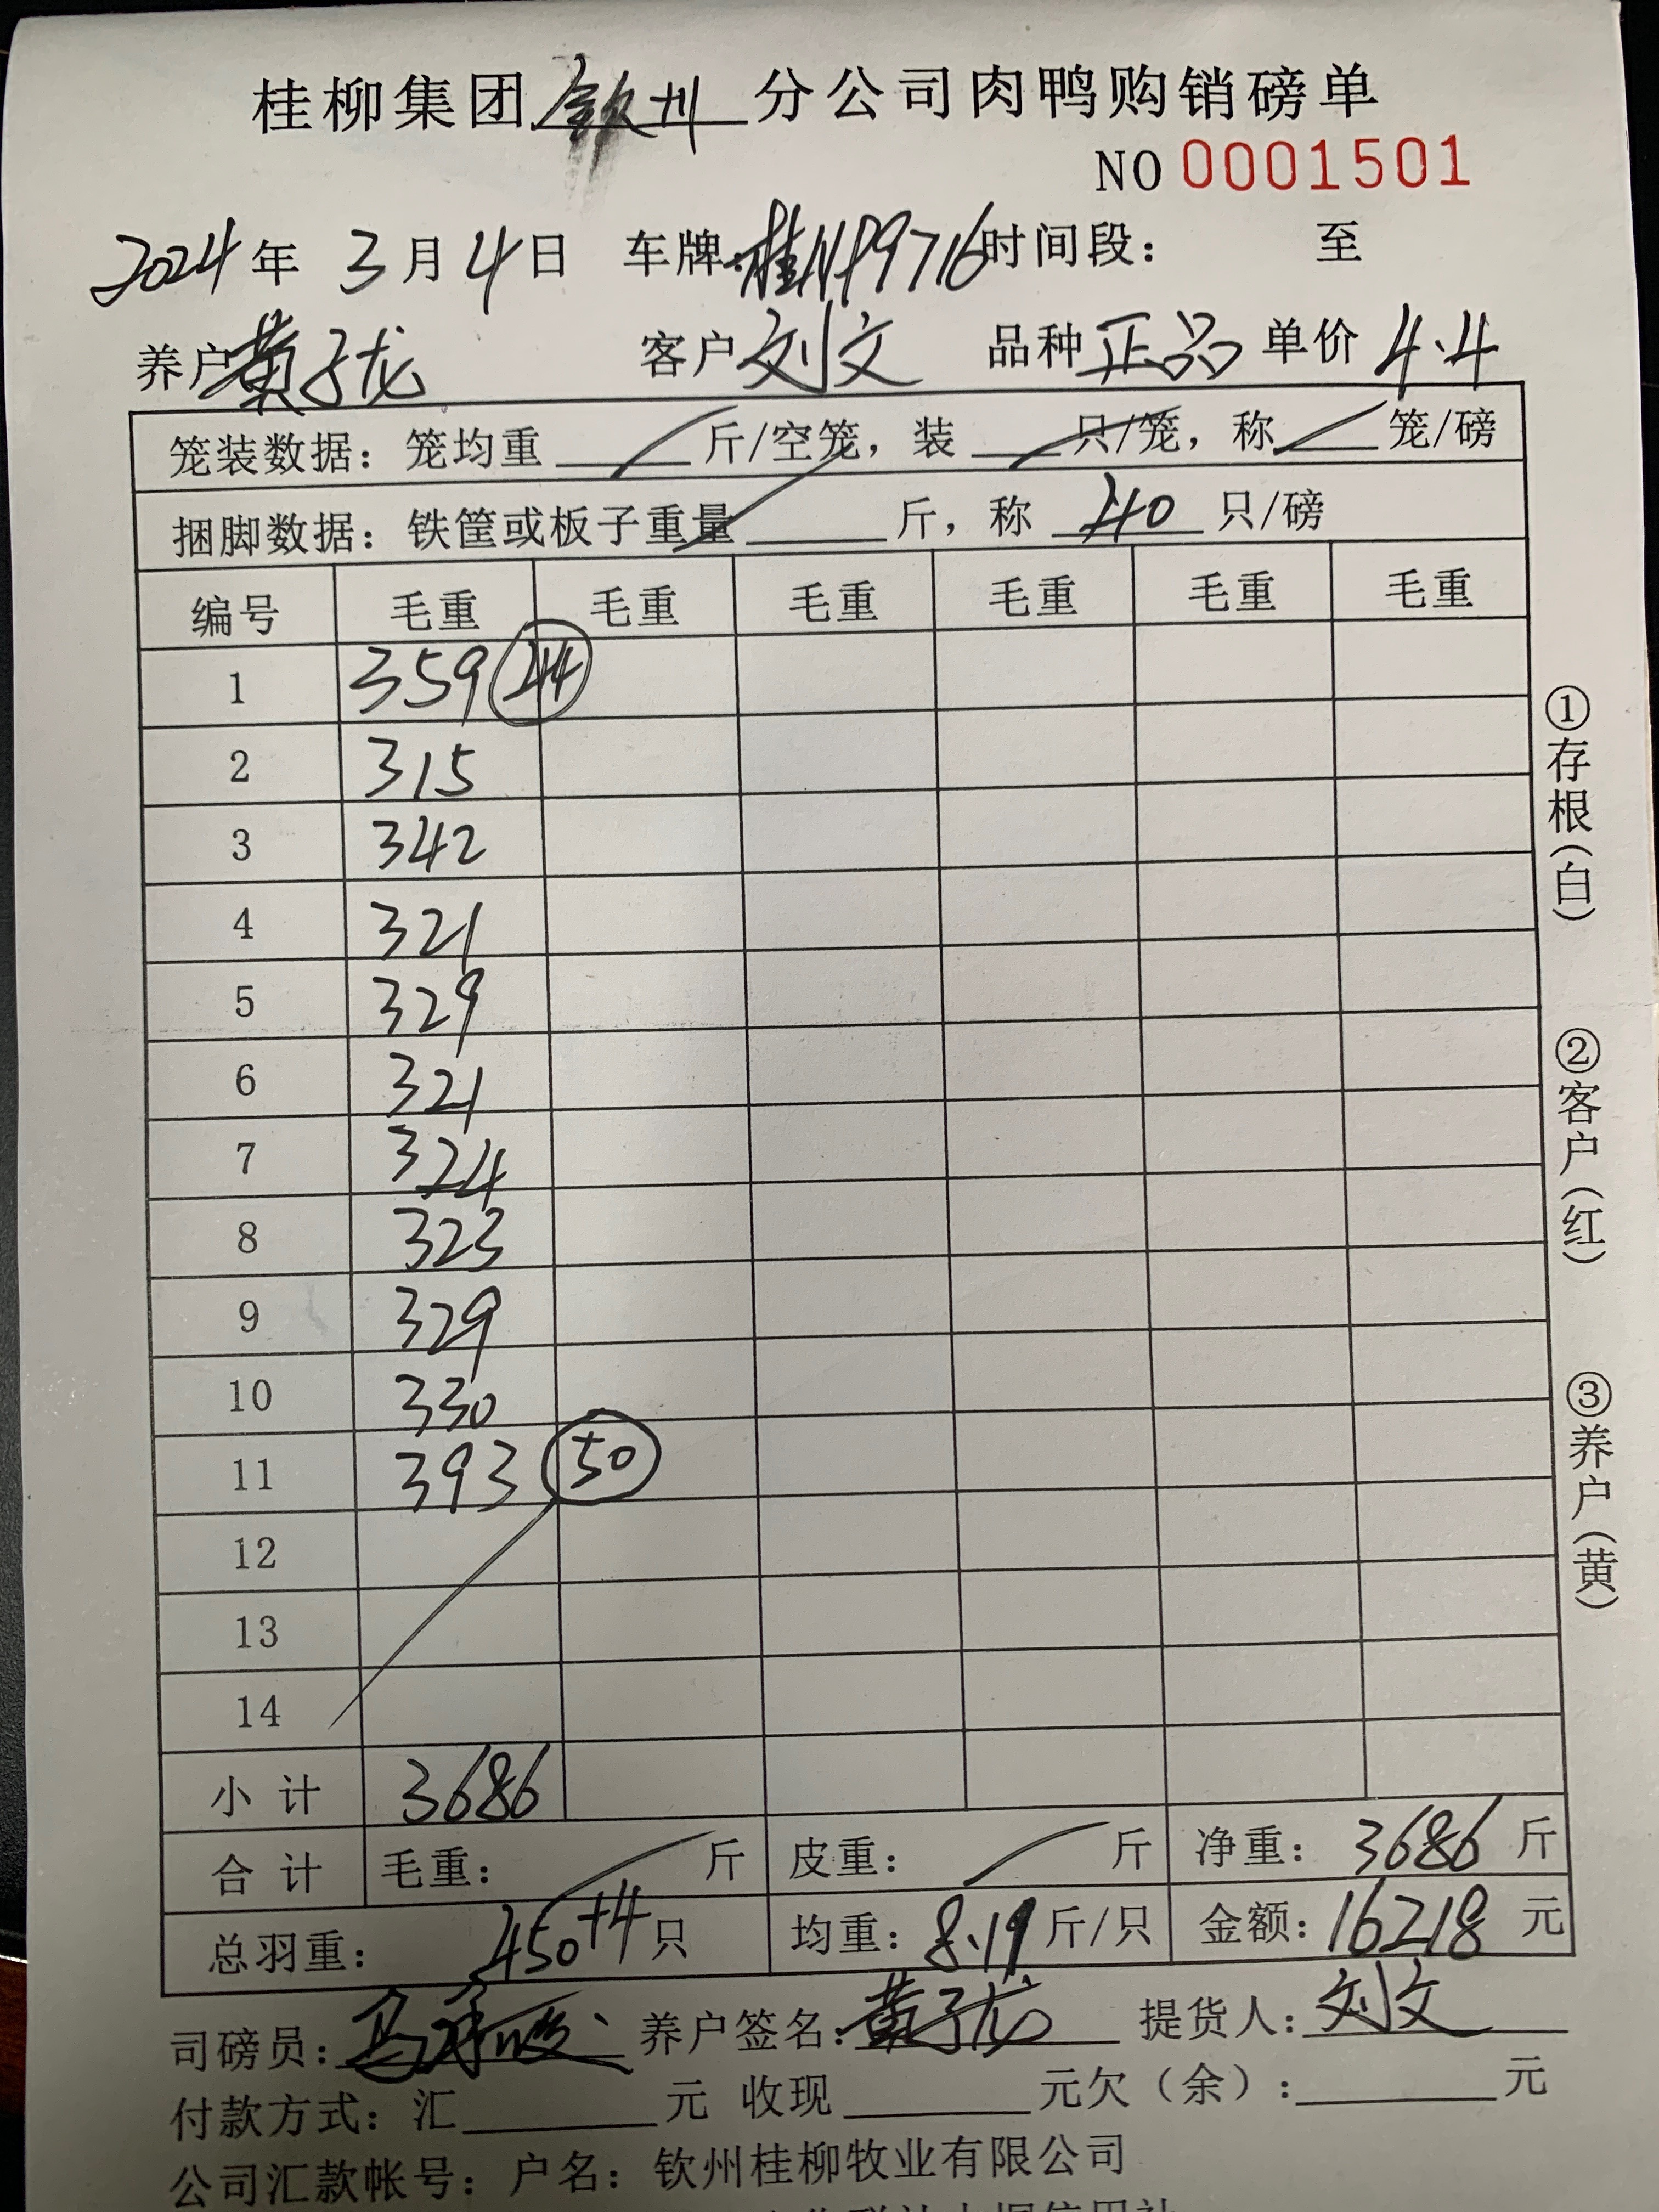 桂柳集团钦州分公司肉鸭购销磅单
NO 0001501
2024年3月4日 车牌:桂NP9716时间段： 至
养户黄子龙 客户刘文 品种正品 单价4.4
笼装数据：笼均重 斤/空笼，装 只/笼，称 笼/磅
捆脚数据：铁筐或板子重量 斤，称 40 只/磅
编号 毛重 毛重 毛重 毛重 毛重 毛重
1 359 44
2 315
3 342
4 321
5 329
6 321
7 324
8 323
9 329
10 330
11 393 50
12
13
14
小计 3686
合计 毛重： 斤 皮重： 斤 净重：3686斤
总羽重：450+4只 均重：8.19斤/只 金额：16218元
司磅员： 养户签名：黄子龙 提货人：刘文
付款方式：汇 元 收现 元欠（余）： 元
公司汇款帐号：户名：钦州桂柳牧业有限公司
①存根（白）
②客户（红）
③养户（黄）